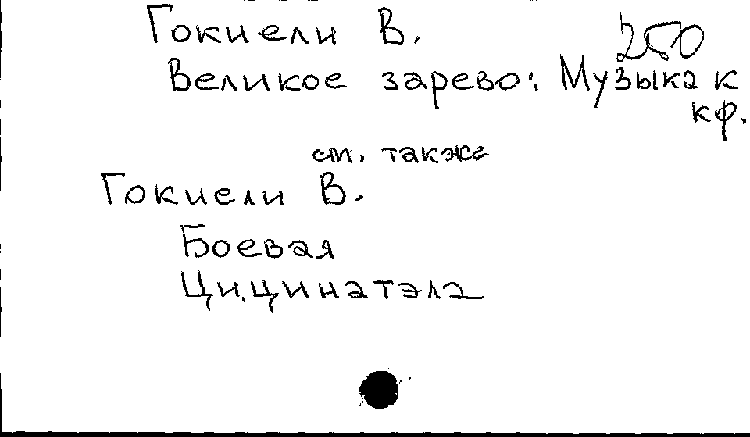 Гокиели В.
250
Великое зарево: Музыка к
кф.
см. также
Гокиели В.
Боевая
Цицинатэла